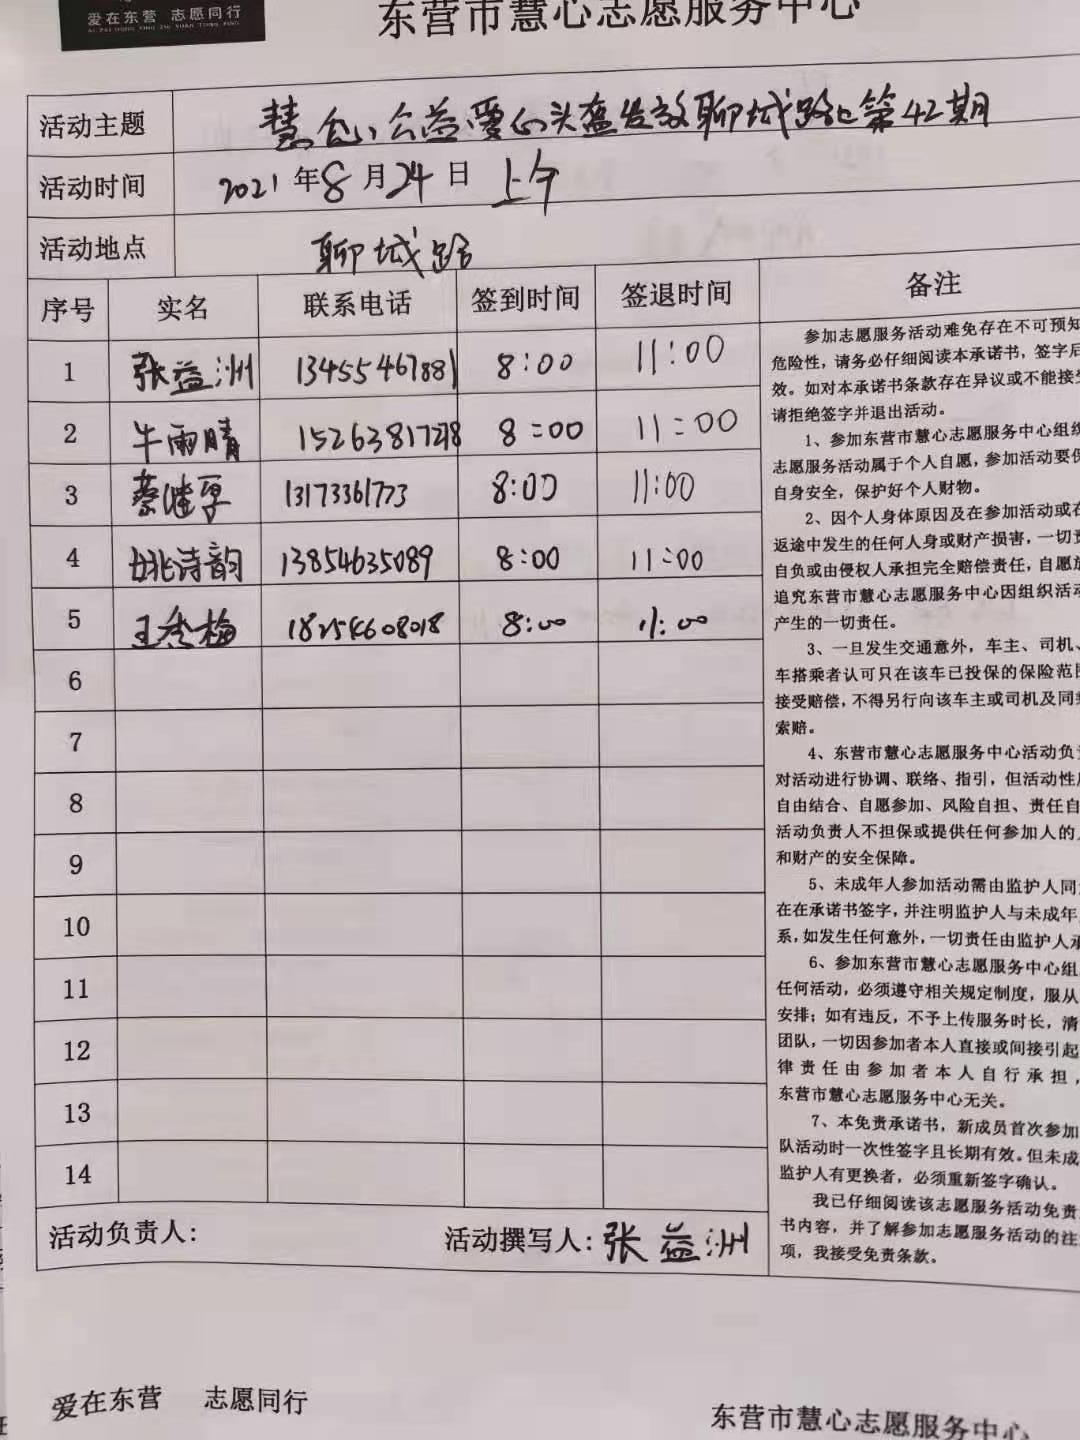 爱在东营 志愿同行
东营市慧心志愿服务中心
活动主题 慧心公益爱心头盔发放聊城路第42期
活动时间 2021年8月24日 上午
活动地点 聊城路
序号 实名 联系电话 签到时间 签退时间 备注
1 张益洲 13455467881 8:00 11:00
2 牛雨晴 15263817278 8:00 11:00
3 蔡继厚 13173361773 8:00 11:00
4 姚诗韵 13854635089 8:00 11:00
5 王秀梅 18254608018 8:00 11:00
6
7
8
9
10
11
12
13
14
参加志愿服务活动难免存在不可预知
危险性，请务必仔细阅读本承诺书，签字后
效。如对本承诺书条款存在异议或不能接受
请拒绝签字并退出活动。
1、参加东营市慧心志愿服务中心组织
志愿服务活动属于个人自愿，参加活动要保
自身安全，保护好个人财物。
2、因个人身体原因及在参加活动或在
返途中发生的任何人身或财产损害，一切责
自负或由侵权人承担完全赔偿责任，自愿放
追究东营市慧心志愿服务中心因组织活动
产生的一切责任。
3、一旦发生交通意外，车主、司机、
车搭乘者认可只在该车已投保的保险范围
接受赔偿，不得另行向该车主或司机及同乘
索赔。
4、东营市慧心志愿服务中心活动负责
对活动进行协调、联络、指引，但活动性质
自由结合、自愿参加、风险自担、责任自
活动负责人不担保或提供任何参加人的人
和财产的安全保障。
5、未成年人参加活动需由监护人同意
在在承诺书签字，并注明监护人与未成年
系，如发生任何意外，一切责任由监护人承
6、参加东营市慧心志愿服务中心组
任何活动，必须遵守相关规定制度，服从
安排；如有违反，不予上传服务时长，清
团队，一切因参加者本人直接或间接引起
律责任由参加者本人自行承担，
东营市慧心志愿服务中心无关。
7、本免责承诺书，新成员首次参加
队活动时一次性签字且长期有效。但未成
监护人有更换者，必须重新签字确认。
我已仔细阅读该志愿服务活动免责
书内容，并了解参加志愿服务活动的注
项，我接受免责条款。
活动负责人： 活动撰写人：张益洲
爱在东营 志愿同行
东营市慧心志愿服务中心